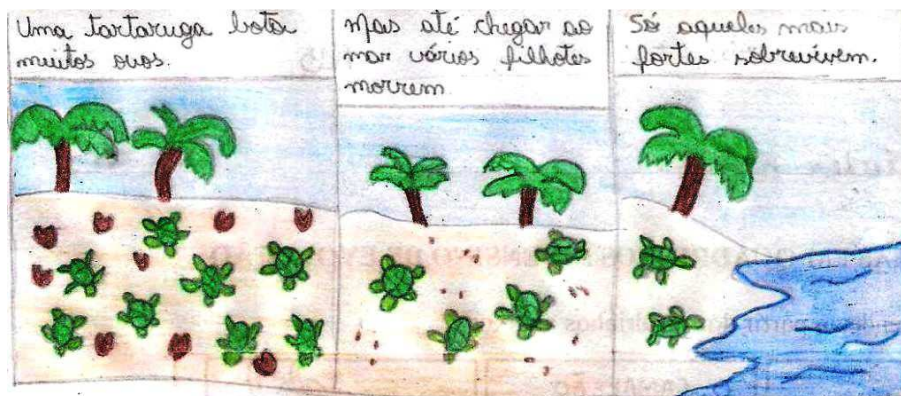 Uma tartaruga bota
muitos ovos.
Mas até chegar ao
mar vários filhotes
morrem
Só aqueles mais
fortes sobrevivem.